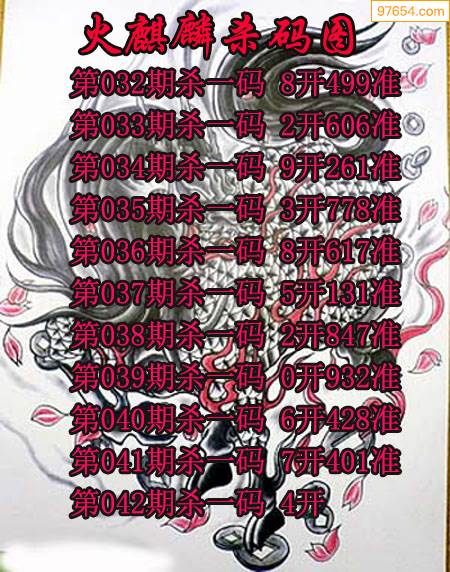 97654.com
火麒麟杀码图
第032期杀一码 8开499准
第033期杀一码 2开606准
第034期杀一码 9开261准
第035期杀一码 3开778准
第036期杀一码 8开617准
第037期杀一码 5开131准
第038期杀一码 2开847准
第039期杀一码 0开932准
第040期杀一码 6开428准
第041期杀一码 7开401准
第042期杀一码 4开